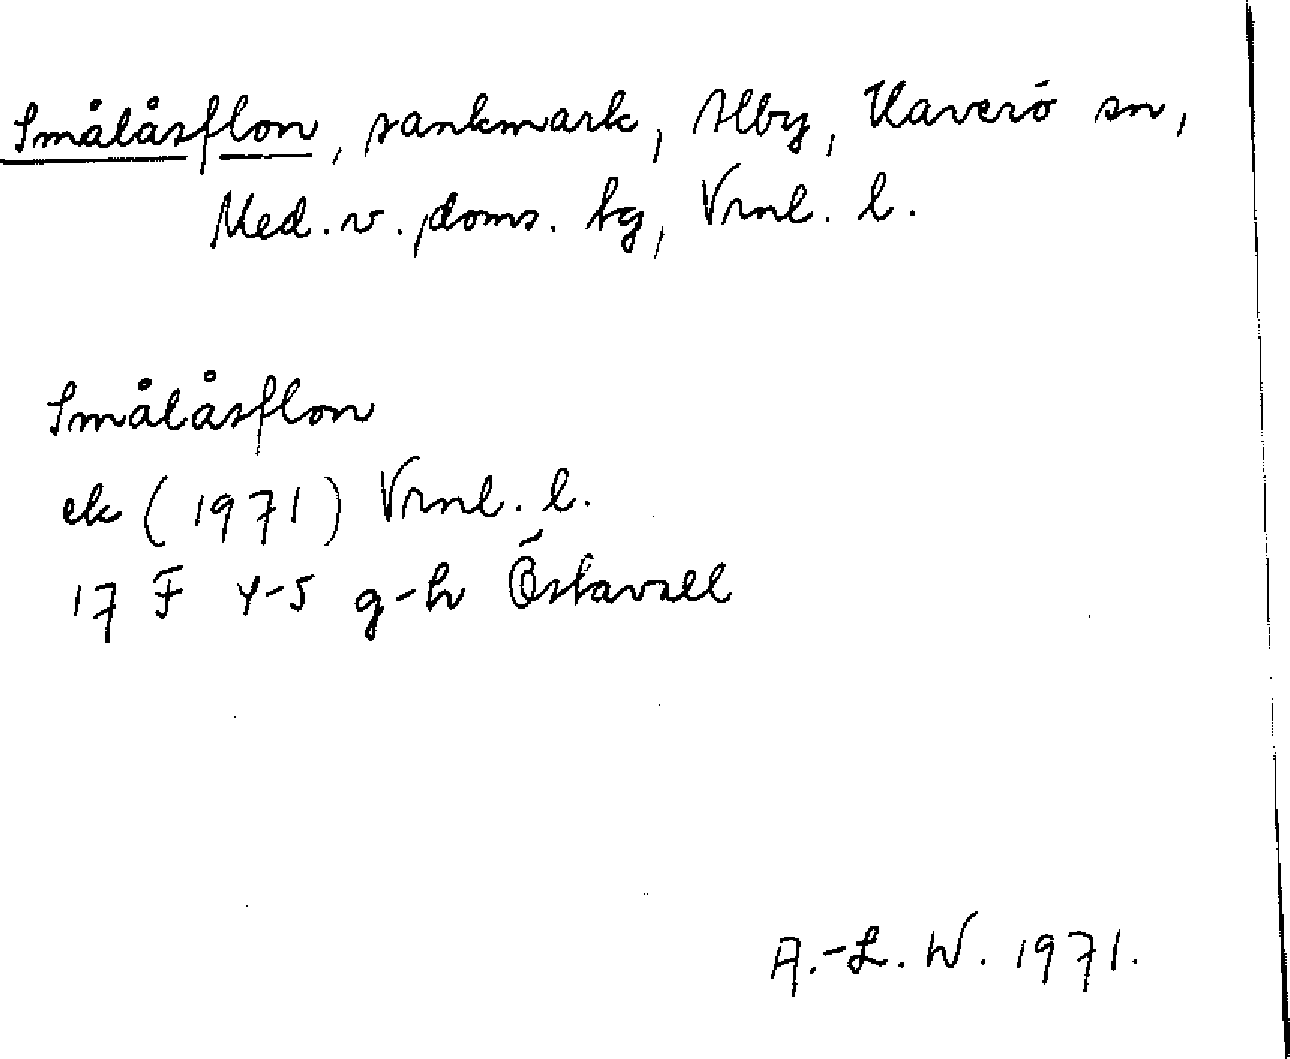 Smålåsflon, sankmark, Alby, Haverö sn,
Med. v. doms. tg, Vrnl. l.
Smålåsflon
ek (1971) Vrnl. l.
17 F 4-5 g-h Östavall
A.-L. W. 1971.